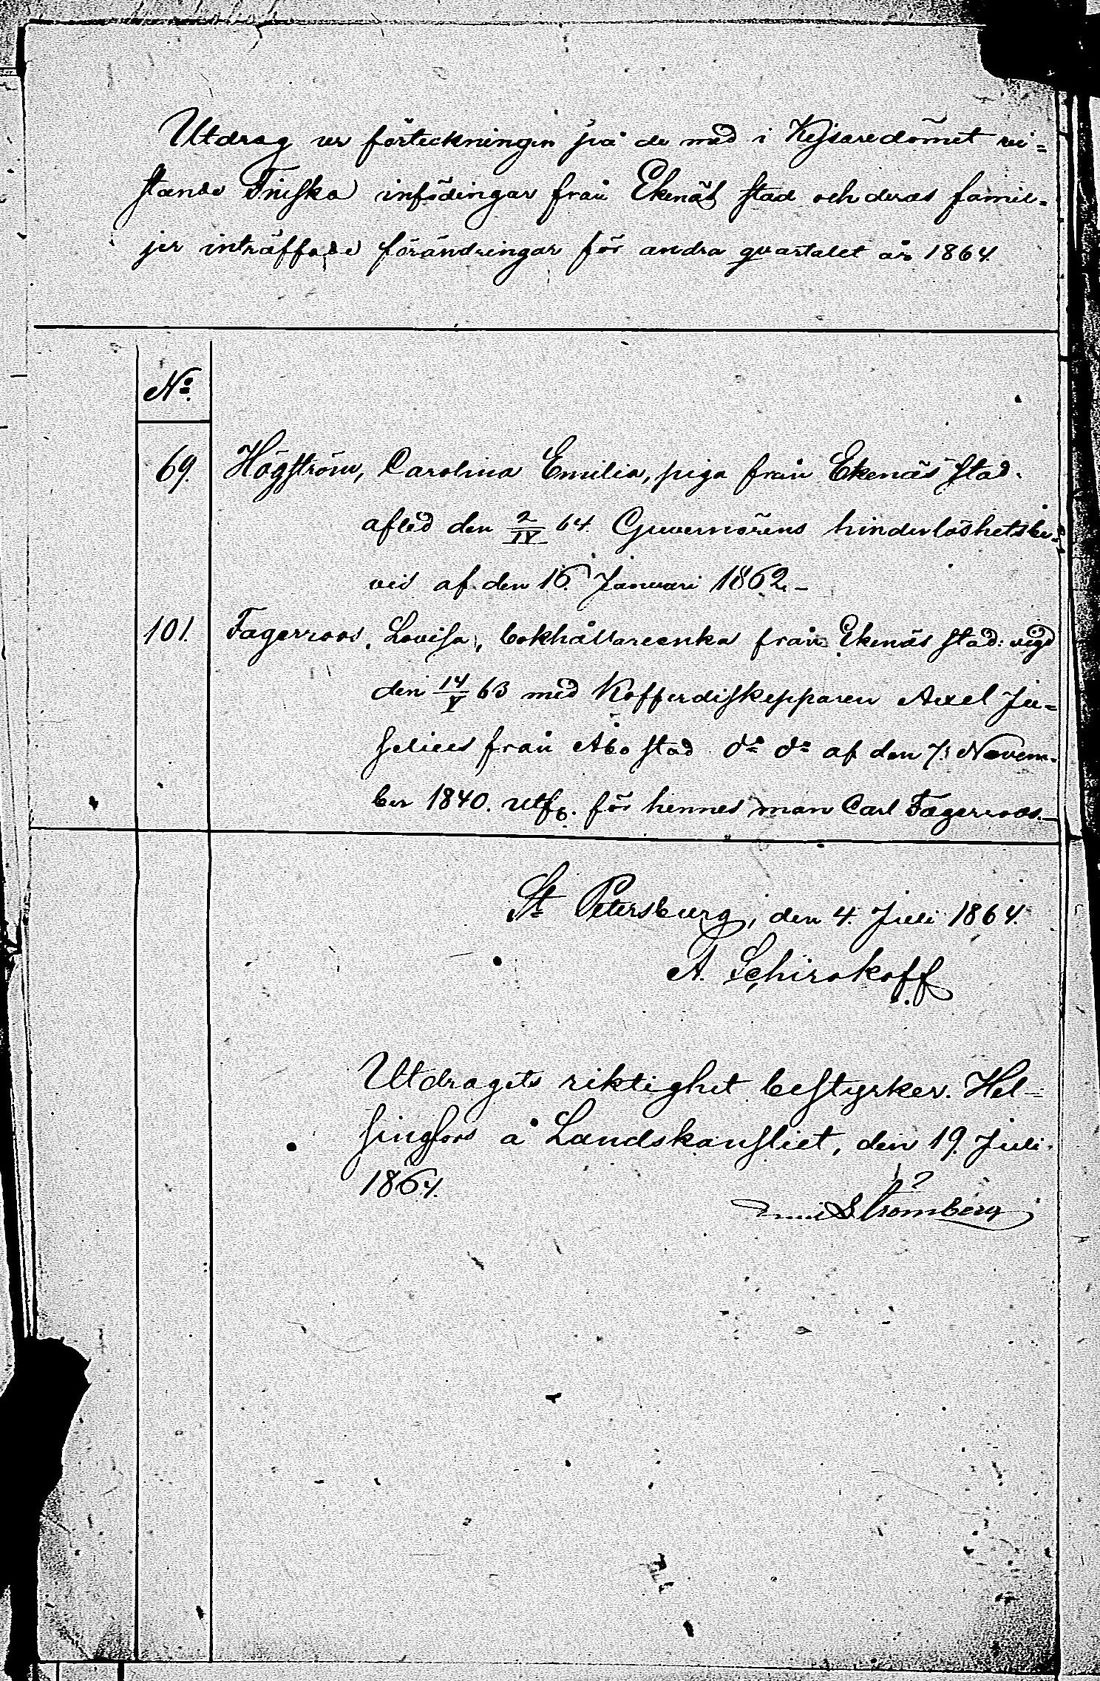 Utdrag ur förteckningen på de med i Kejsaredömet vi=
stande Finska infödingar från Ekenäs stad och deras famil=
jer inträffade förändringar för andra qvartalet år 1864.
No.
69. Högström, Carolina Emilia, piga från Ekenäs stad.
afled den 2/IV 64 Guvernörens hinderlöshetsbe=
vis af den 16. Januari 1862.-
101. Fagerroos, Lovisa, bokhållareenka från Ekenäs stad: vigd
den 14/V 63 med Kofferdiskepparen Axel Ju=
selius från Åbo stad do do af den 7. Novem=
ber 1840. utf. för hennes man Carl Fagerroos.-
St Petersburg, den 4. Juli 1864.
A. Schirokoff
Utdragets riktighet bestyrker. Hel=
singfors å Landskansliet, den 19. Juli
1864.
Strömberg